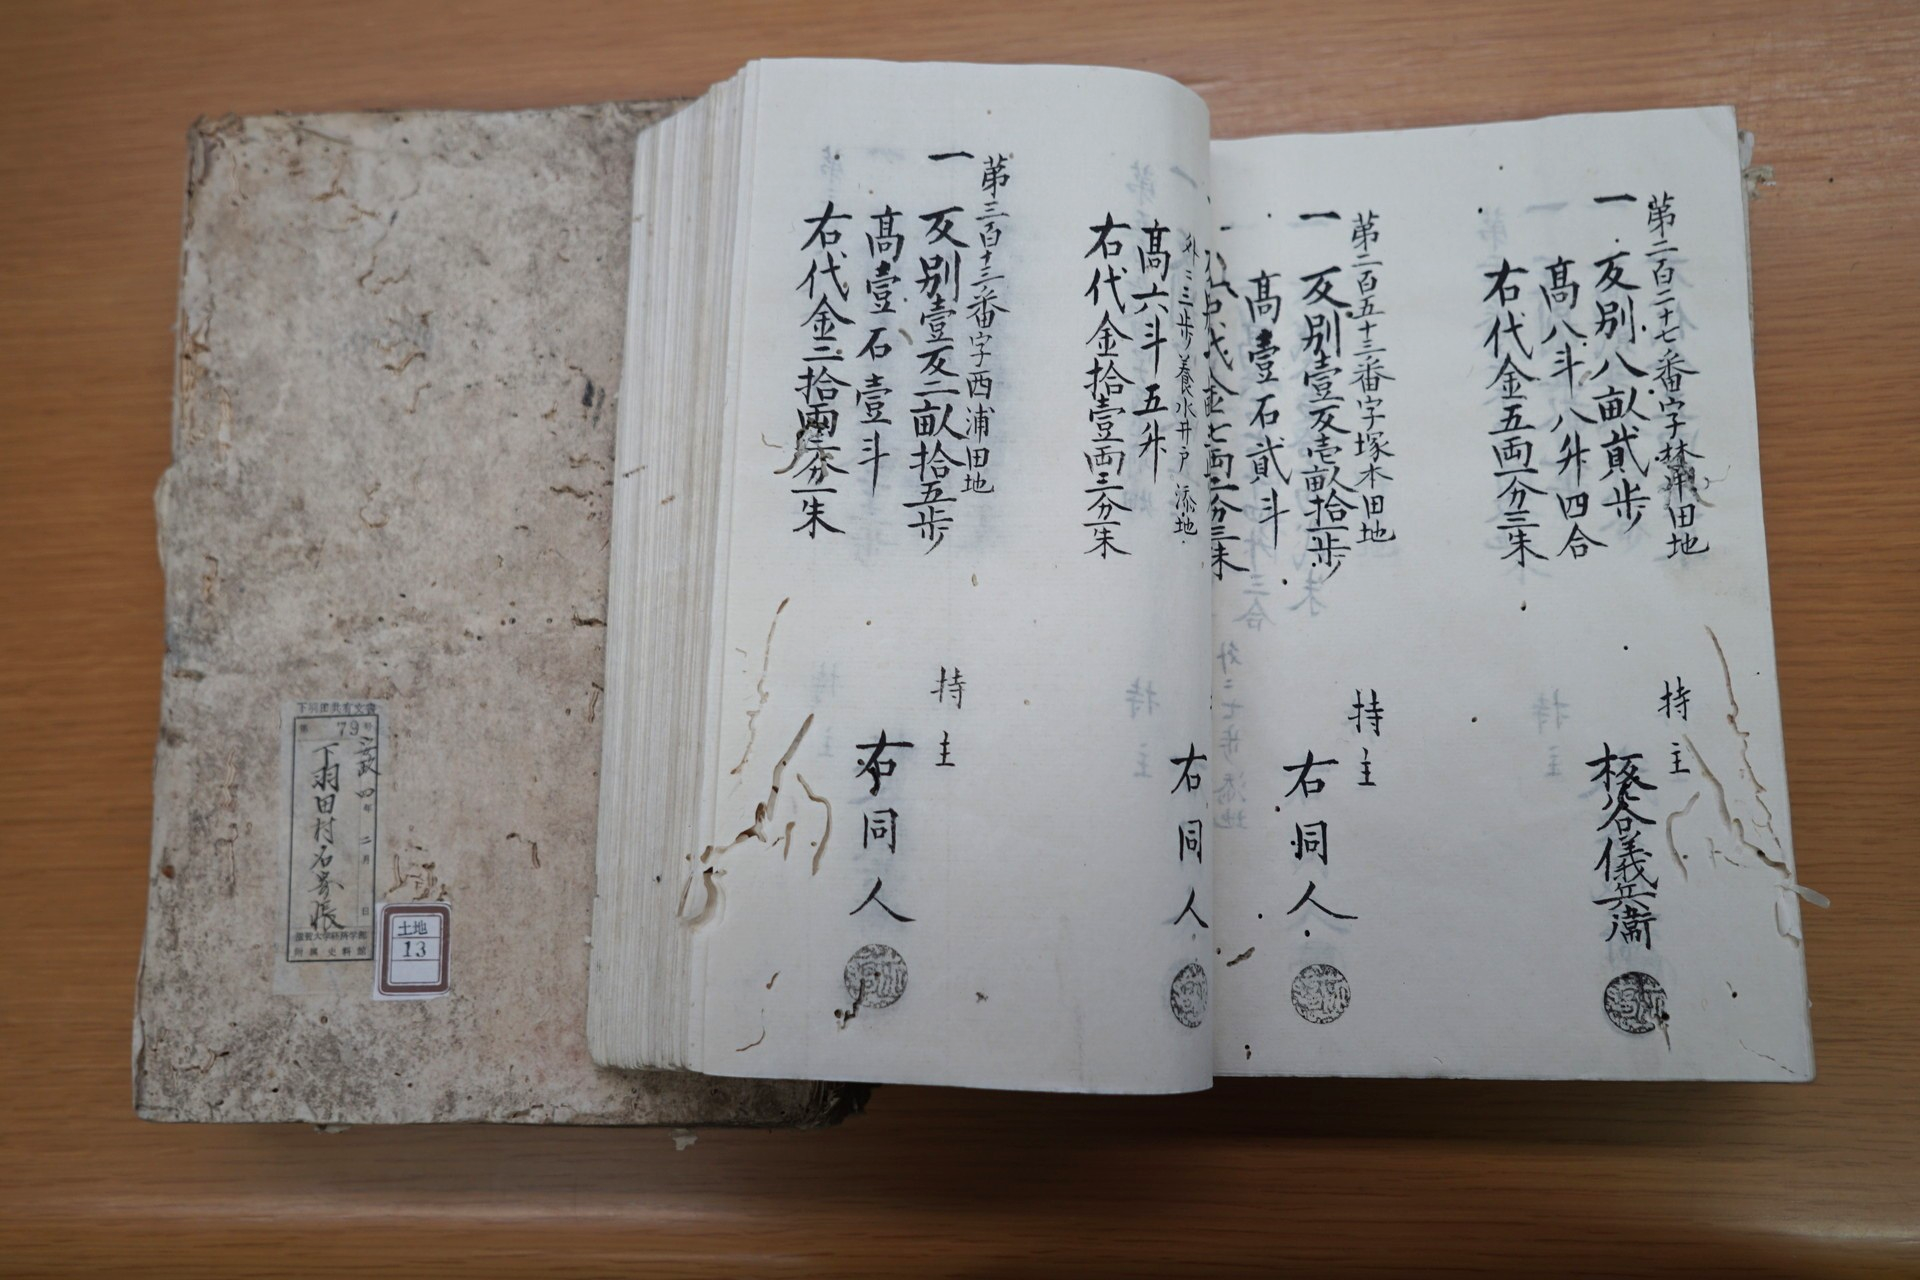 第二百二十七番字林田地
一 反別八畝貳歩
高八斗八升四合
右代金五両一分三朱
持主
儀兵衛
第二百五十三番字塚本田地
一 反別壹反壱畝拾一歩
高壹石貳斗
持主
右同人
外三歩養水井戸添地
高六斗五升
右代金拾壹両三分一朱
右同人
第三百十三番字西浦田地
一 反別壹反二畝拾五歩
高壹石壹斗
右代金二拾両二分一朱
持主
右同人
79
四年二月日
下羽田村石券帳
土地
13